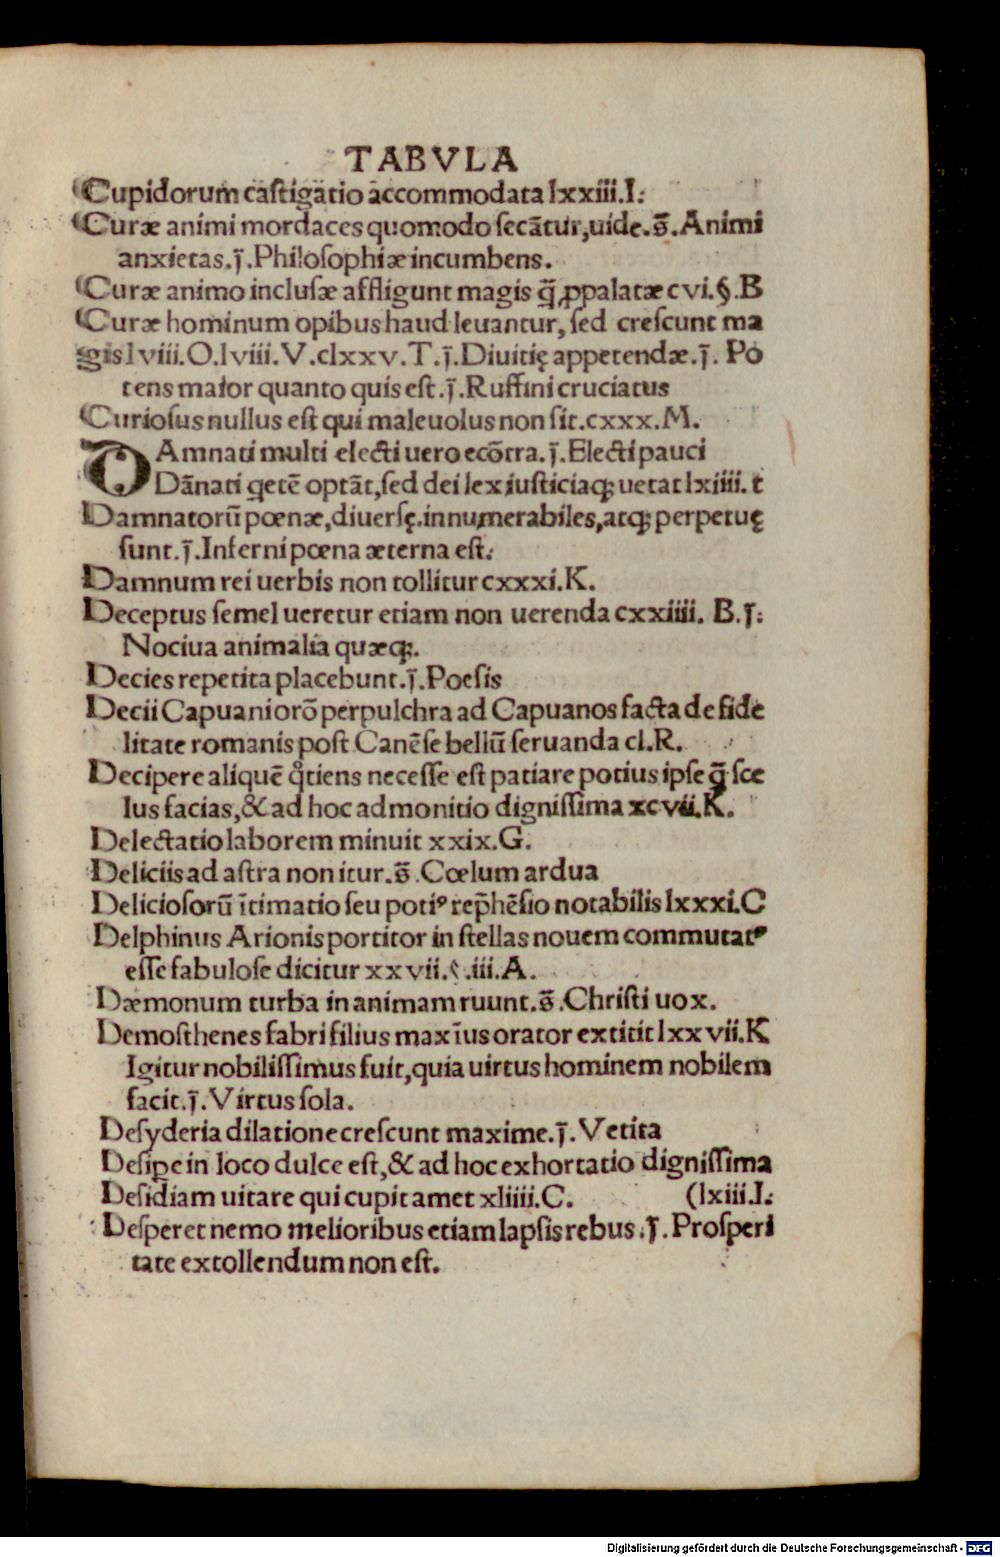 TABVLA
Cupidorum castigatio accommodata lxxiii.I.
Curæ animi mordaces quomodo secãtur,uide.s̃.Animi
anxietas.j̃.Philosophiæ incumbens.
Curæ animo inclusæ affligunt magis q̃ ꝓpalatæ cvi.§.B
Curæ hominum opibus haud leuantur, sed crescunt ma
gis lviii.O.lviii.V.clxxv.T.j̃.Diuitię appetendæ.j̃. Po
tens maior quanto quis est.j̃.Ruffini cruciatus
Curiosus nullus est qui maleuolus non sit.cxxx.M.
DAmnati multi electi uero ecõtra.j̃.Electi pauci
Dãnati q̃etẽ optãt,sed dei lex iusticiaqꝫ uetat lxiiii. t
Damnatorũ pœnæ,diuersę.innumerabiles,atqꝫ perpetuę
sunt.j̃.Inferni pœna æterna est.
Damnum rei uerbis non tollitur cxxxi.K.
Deceptus semel ueretur etiam non uerenda cxxiiii. B.j̃:
Nociua animalia quæqꝫ.
Decies repetita placebunt.j̃.Poesis
Decii Capuani orõ perpulchra ad Capuanos facta de fide
litate romanis post Canẽse bellũ seruanda cl.R.
Decipere aliquẽ q̊tiens necesse est patiare potius ipse q̃ sce
lus facias,& ad hoc admonitio dignissima xcvii.K.
Delectatio laborem minuit xxix.G.
Deliciis ad astra non itur.s̃.Cœlum ardua
Deliciosorũ ĩtimatio seu potiꝰ rep̃hẽsio notabilis lxxxi.C
Delphinus Arionis portitor in stellas nouem commutatꝰ
esse fabulose dicitur xxvii.&.iii.A.
Dæmonum turba in animam ruunt.s̃.Christi uox.
Demosthenes fabri filius maxĩus orator extitit lxxvii.K
Igitur nobilissimus fuit,quia uirtus hominem nobilem
facit.j̃.Virtus sola.
Desyderia dilatione crescunt maxime.j̃.Vetita
Desipe in loco dulce est,& ad hoc exhortatio dignissima
Desidiam uitare qui cupit amet xliiii.C. (lxiii.I.
Desperet nemo melioribus etiam lapsis rebus.j̃.Prosperi
tate extollendum non est.
Digitalisierung gefördert durch die Deutsche Forschungsgemeinschaft - DFG